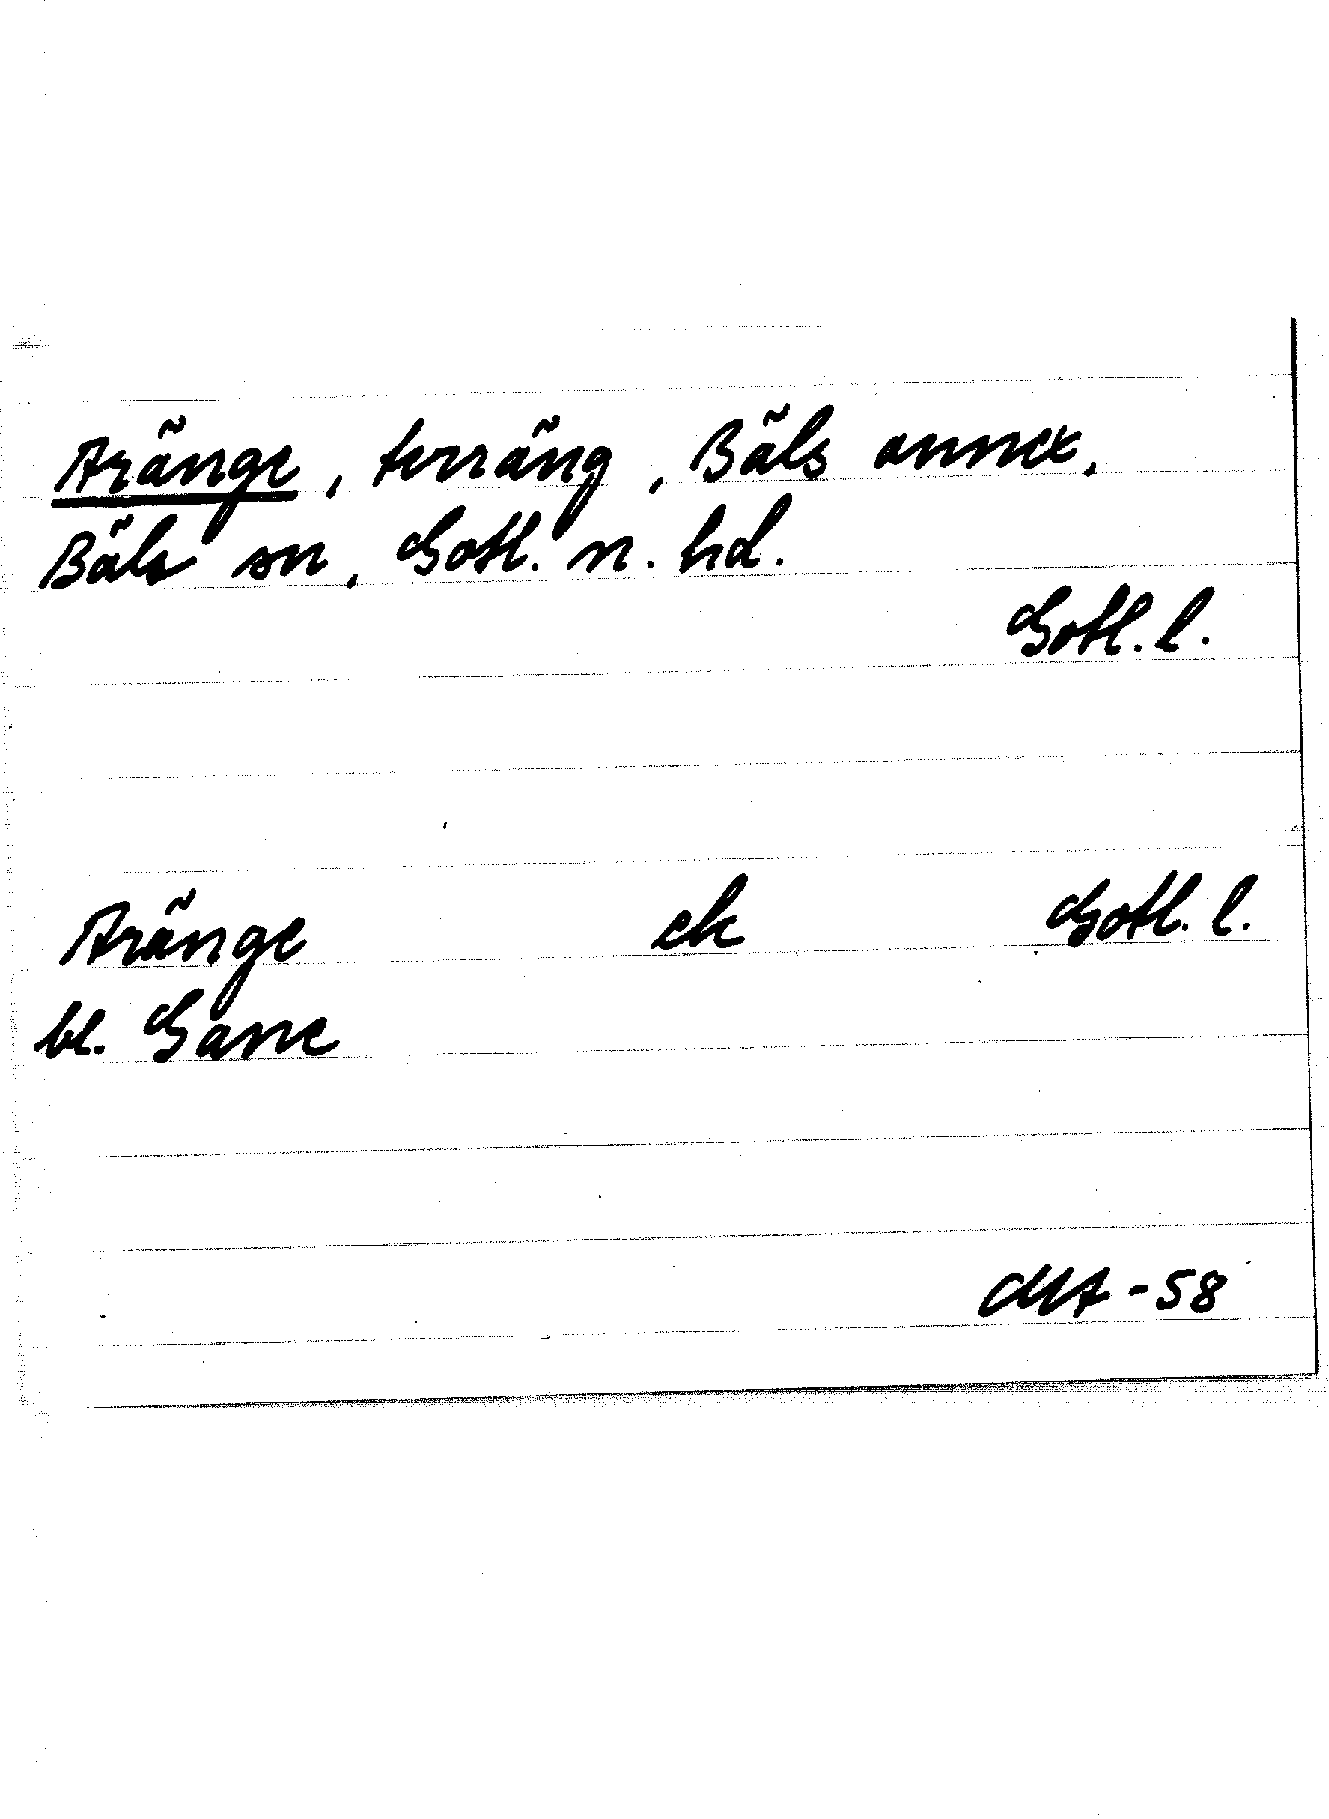 Aränge, terräng, Bäls annex,
Bäls sn, Gotl. n. hd.
Gotl. l.
Aränge ek Gotl. l.
bl. Gane
-58